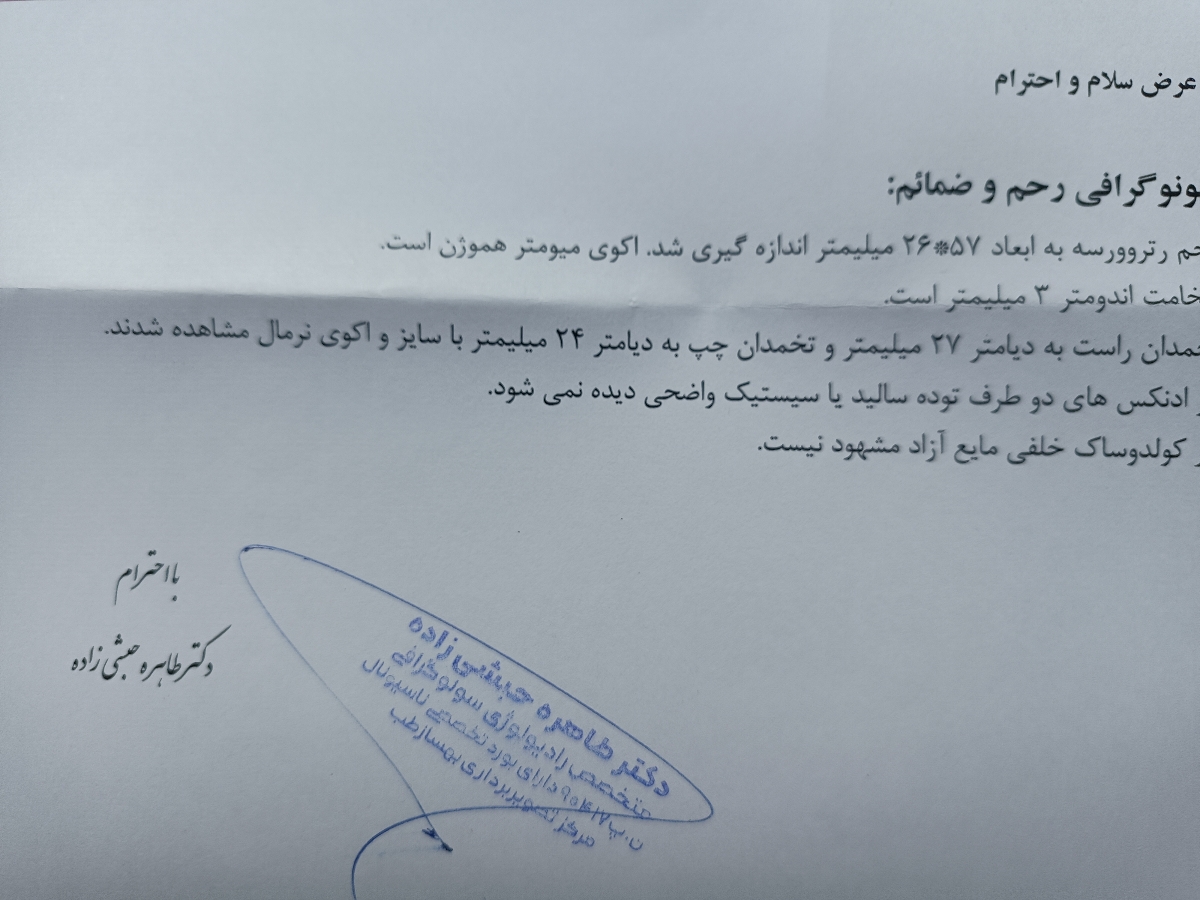 عرض سلام و احترام
ونوگرافی رحم و ضمائم:
رتروورسه به ابعاد ۵۷*۲۶ میلیمتر اندازه گیری شد. اکوی میومتر هموژن است.
خامت اندومتر ۳ میلیمتر است.
مدان راست به دیامتر ۲۷ میلیمتر و تخمدان چپ به دیامتر ۲۴ میلیمتر با سایز و اکوی نرمال مشاهده شدند.
ادنکس های دو طرف توده سالید یا سیستیک واضحی دیده نمی شود.
کولدوساک خلفی مایع آزاد مشهود نیست.
بااحترام
دکتر طاهره حبشی زاده
دکتر طاهره حبشی زاده
متخصص رادیولوژی سونوگرافی
ن.پ دارای بورد تخصصی ناسیونال
مرکز تصویربرداری بهسازطب